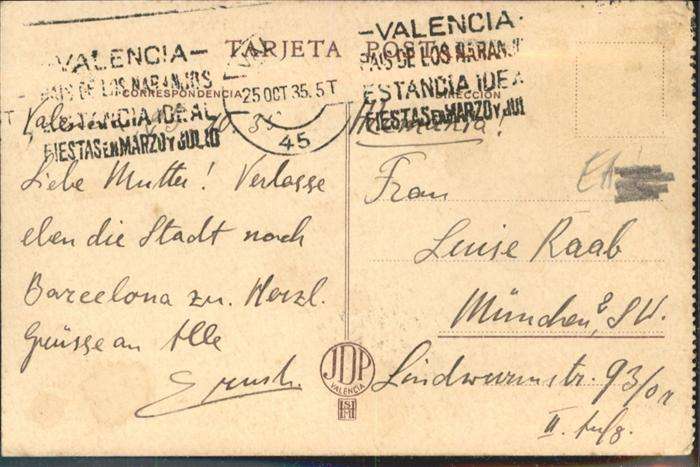 TARJETA POSTAL
CORRESPONDENCIA
DIRECCION
-VALENCIA-
PAIS DE LOS NARANJOS
ESTANCIA IDEAL
FIESTAS EN MARZO Y JULIO
25 OCT 35. 5T
45
-VALENCIA-
PAIS DE LOS NARANJ
ESTANCIA IDEA
FIESTAS EN MARZO Y JUL
Liebe Mutter! Verlasse
eben die Stadt nach
Barcelona zu. Herzl.
Grüsse an Alle
Ernst.
Frau
Luise Raab
München, S.W.
Lindwurmstr. 93/0r
II. Aufg.
JDP
VALENCIA